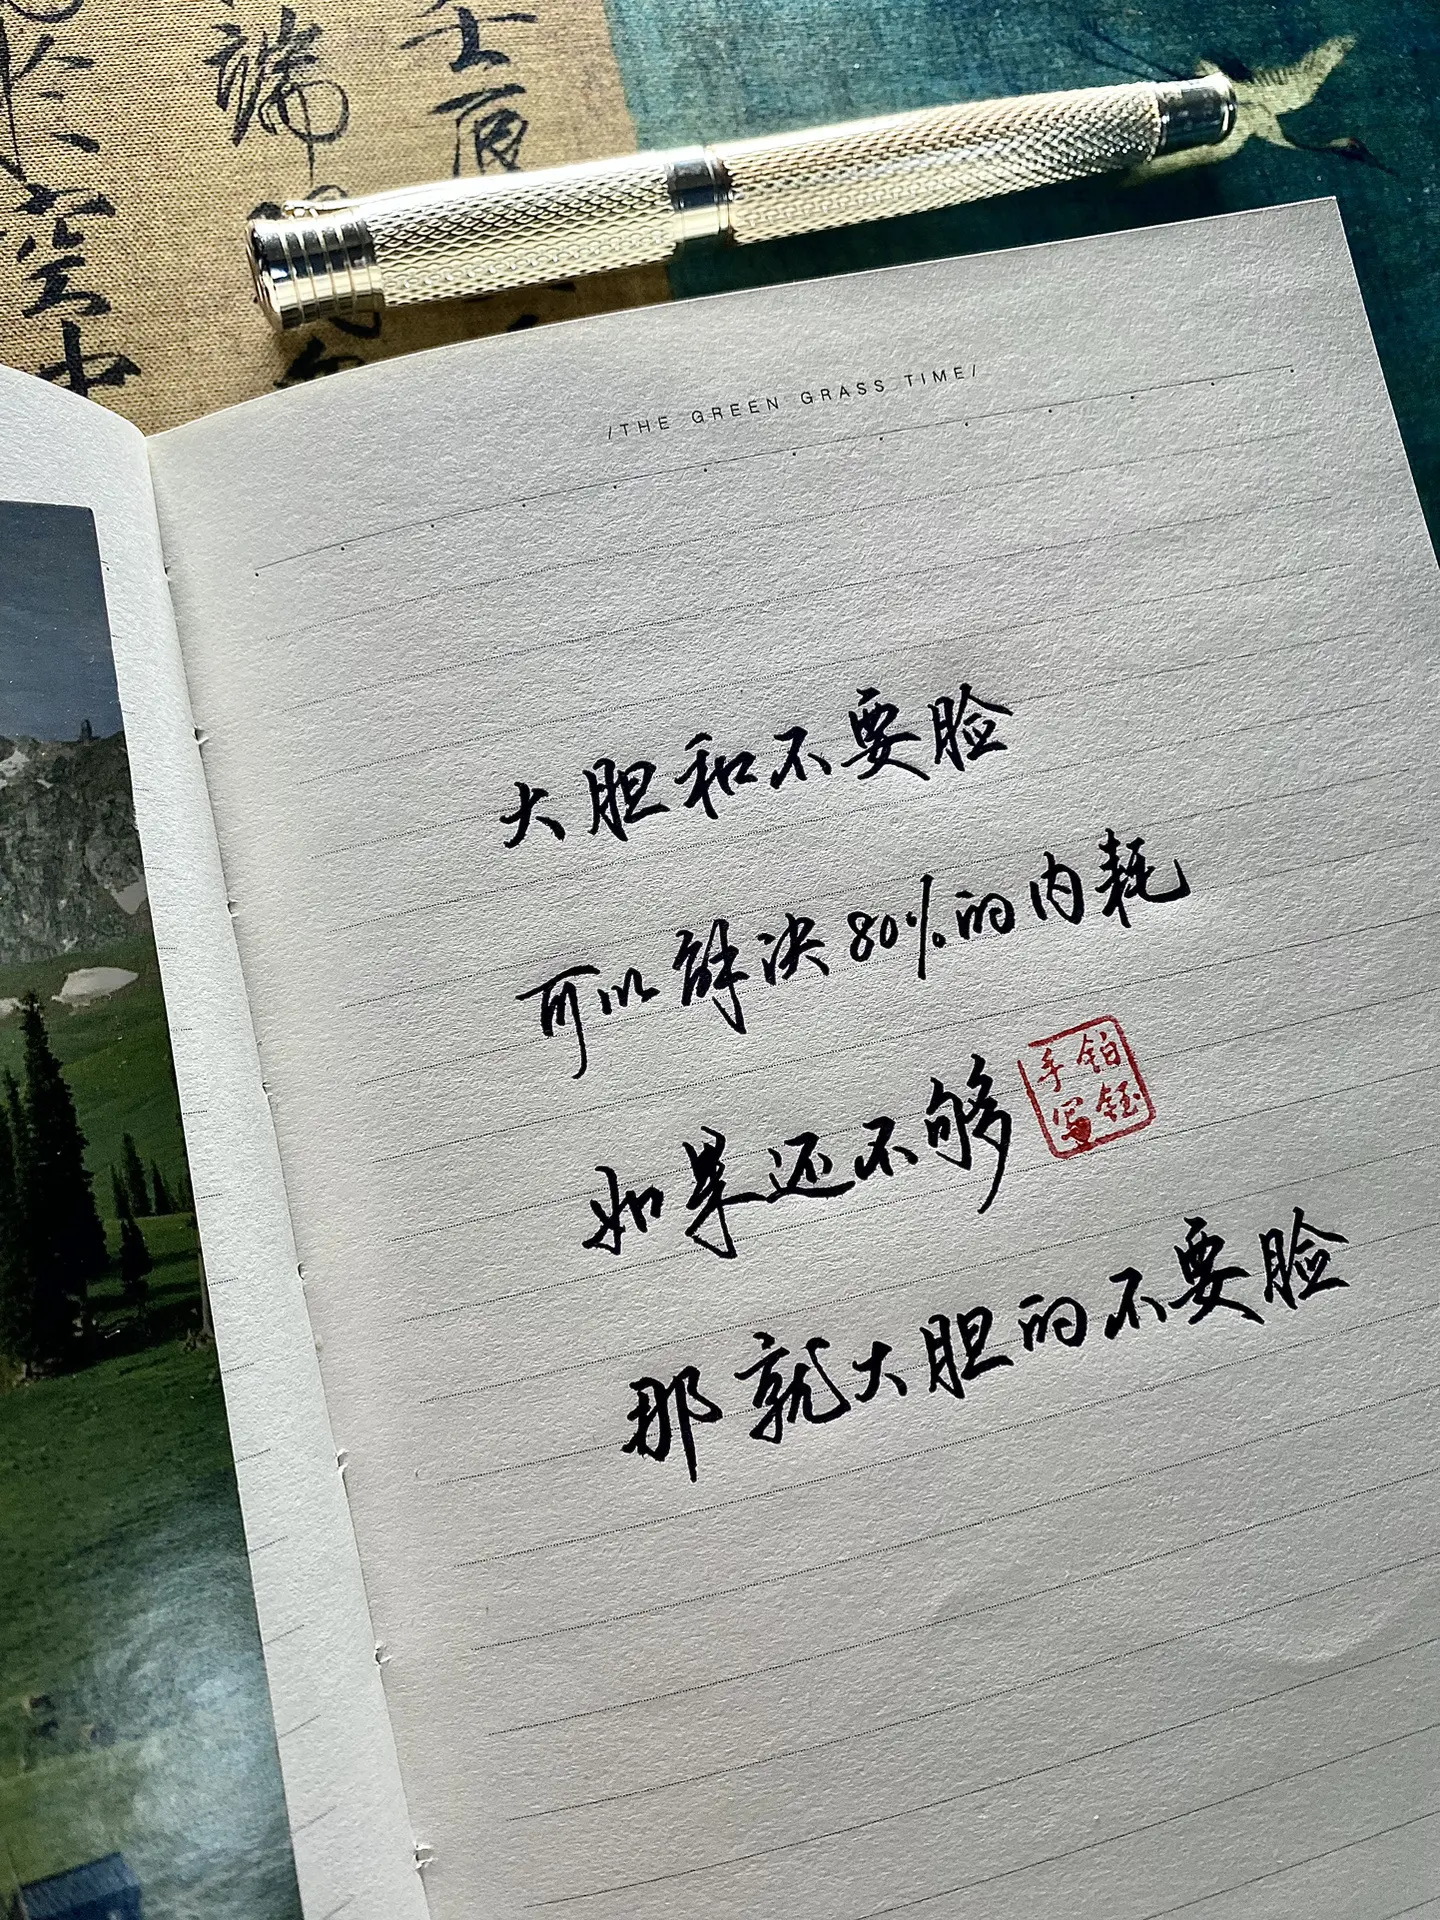 /THE GREEN GRASS TIME/
大胆和不要脸
可以解决80%的内耗
如果还不够
铂钰
手写
那就大胆的不要脸